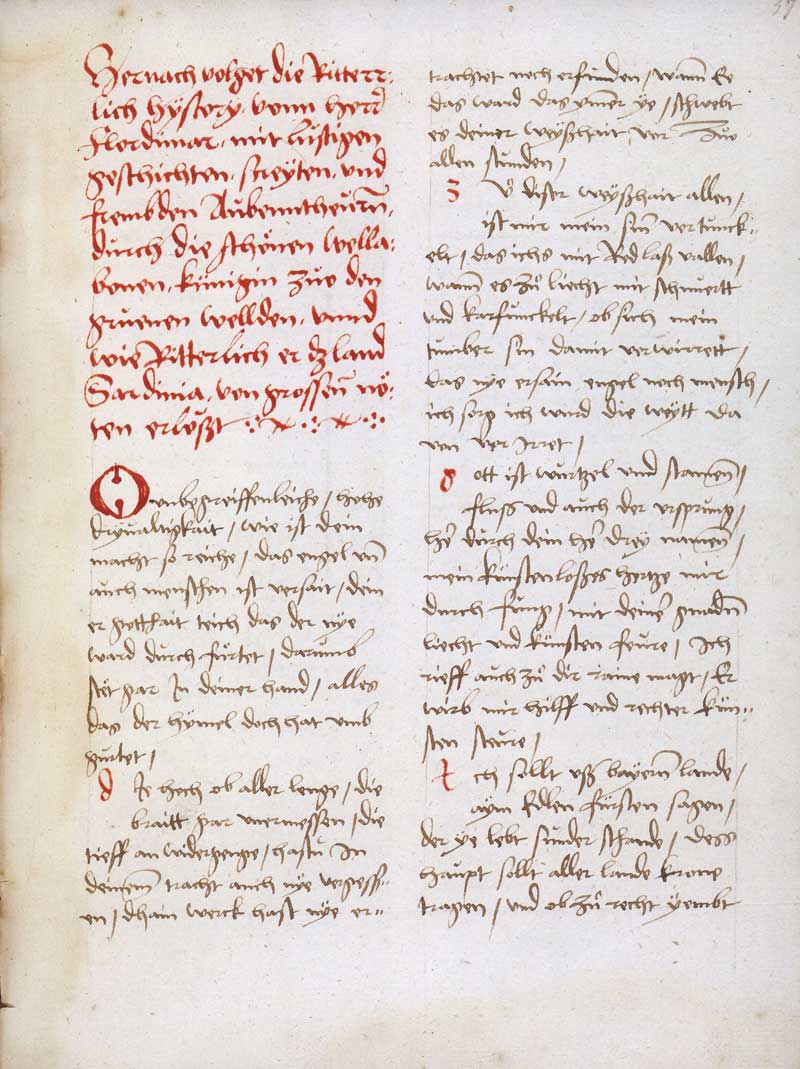 57
Hernach volget die Ritterr-
lich hÿstorÿ, vonn herrn
Flordimar, mit lustigen
geschichten, streÿten, vnd
frembden Aubenntheurn,
durch die schönen Wella-
bonen, künigin zuo den
gruenen wellden, vnnd
wie Ritterlich er dz land
Sardinia, von grossen nö-
ten erlößt
O vnbegreiffenleiche, hohe
drÿualtigkait, wie ist dein
macht so reiche, das engel vnd
auch menschen ist versait, dein
er gotthait teich das der nÿe
ward durch fürtet, darumb
stet gar In deiner hand, alles
das der hÿmel doch hat vmb
gurtet,
d Ie hoch ob aller lenge, die
braitt gar vnermessen, die
tieff an widergenge, hastu In
deinem tracht auch nÿe vergess-
en, dhain werck hast nÿe er-
trachtet noch erfunden, wann Ee
das ward das ymer ye, schwebt
es deiner weÿßhait vor zuo
allen stunden,
Z ů diser weÿßhait allen,
ist mir mein sin vertunck-
elt, das ichs mit Red laß vallen,
wann es zů liecht mit schmertt
vnd karfunckelt, ob sich mein
tumber sin damit verwirrett,
das nÿe ersain engel noch mensch,
ich sorg ich wurd die weÿtt da
von ver Irret,
g ott ist wurtzel vnd stamen,
fluss vnd auch der vrsprung,
her durch dein her dreÿ namen,
mein künstenloßes hertze mir
durch fung, mit deiner gnaden
liecht vnd künsten feure, Ich
rieff auch zů dir raine magt, Er
wirb mir hilff vnd rechter kün-
sten steure,
I ch sollt vß baÿern lande,
aÿm Edlen fürsten sagen,
der ÿe lebt sunder schande, dess
haupt sollt aller lande krone
tragen, vnd ob zů recht ÿembt